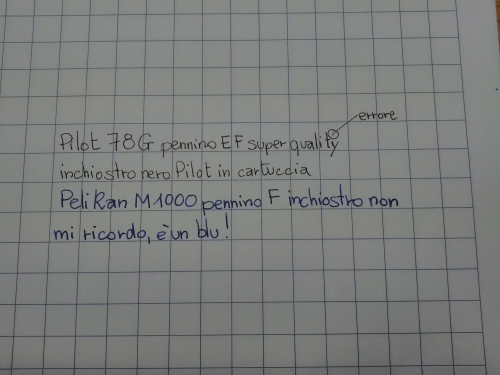 errore
Pilot 78G pennino EF super quality
inchiostro nero Pilot in cartuccia
Pelikan M1000 pennino F inchiostro non
mi ricordo, è un blu!